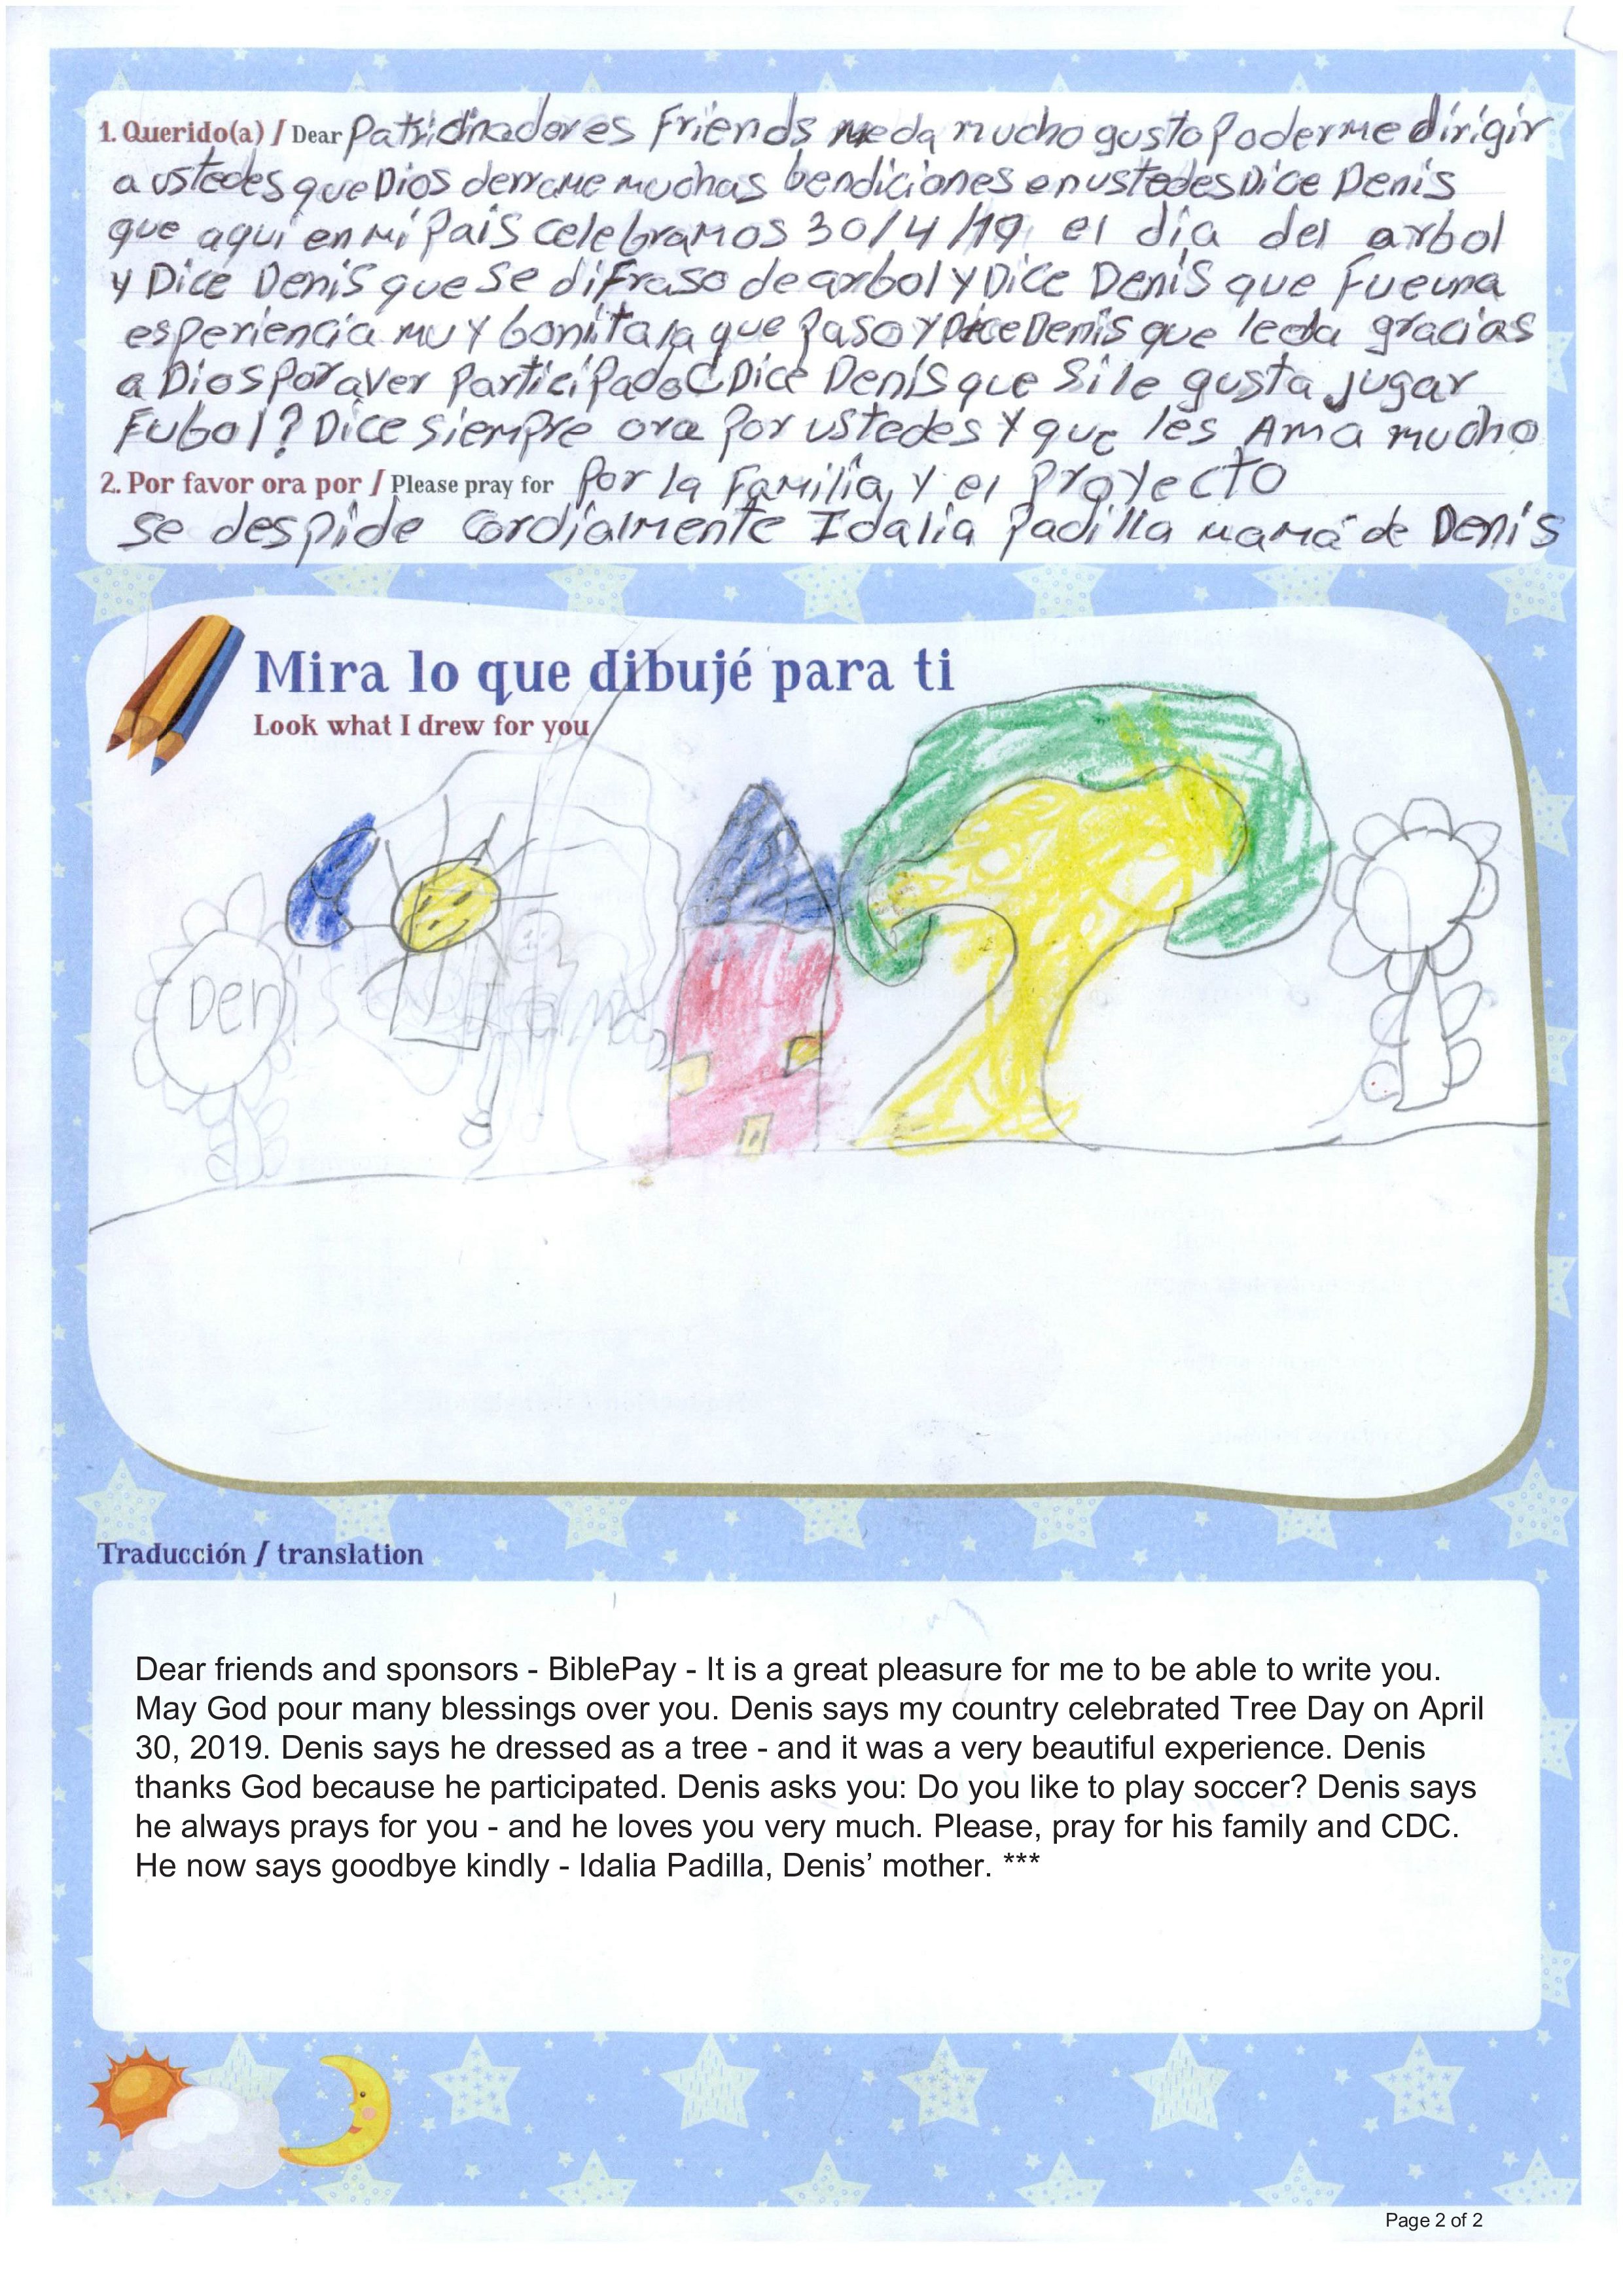 1. Querido(a) / Dear Patricinadores Friends me da mucho gusto Poderme dirigir
a ustedes que Dios derrame muchas bendiciones en ustedes Dice Denis
que aquí en mi País celebramos 30/4/19 el dia del arbol
y Dice Denis que se difraso de arbol y Dice Denis que Fue una
esperiencia muy bonita la que Paso y Dice Denis que le da gracias
a Dios Por aver Participado ¿ Dice Denis que Si le gusta jugar
Fubol? Dice siempre ora Por ustedes y que les Ama mucho
2. Por favor ora por / Please pray for Por la Familia y el Proyecto
se despide Cordialmente Idalia Padilla mamá de Denis
Mira lo que dibujé para ti
Look what I drew for you
Denis
Traducción / translation
Dear friends and sponsors - BiblePay - It is a great pleasure for me to be able to write you.
May God pour many blessings over you. Denis says my country celebrated Tree Day on April
30, 2019. Denis says he dressed as a tree - and it was a very beautiful experience. Denis
thanks God because he participated. Denis asks you: Do you like to play soccer? Denis says
he always prays for you - and he loves you very much. Please, pray for his family and CDC.
He now says goodbye kindly - Idalia Padilla, Denis’ mother. ***
Page 2 of 2